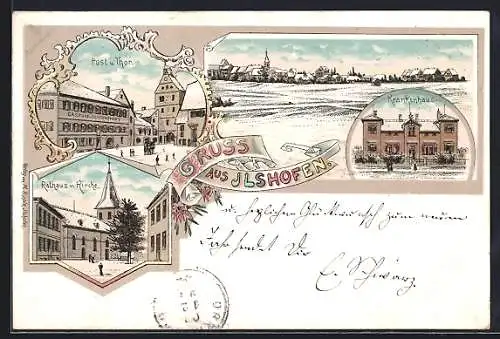 Post u. Thor.
Krankenhaus
GRUSS
AUS JLSHOFEN.
Rathaus u. Kirche.
u. herzlichen Glückwunsch zum neuen
Jahr sendet Dir
E. Schwarz